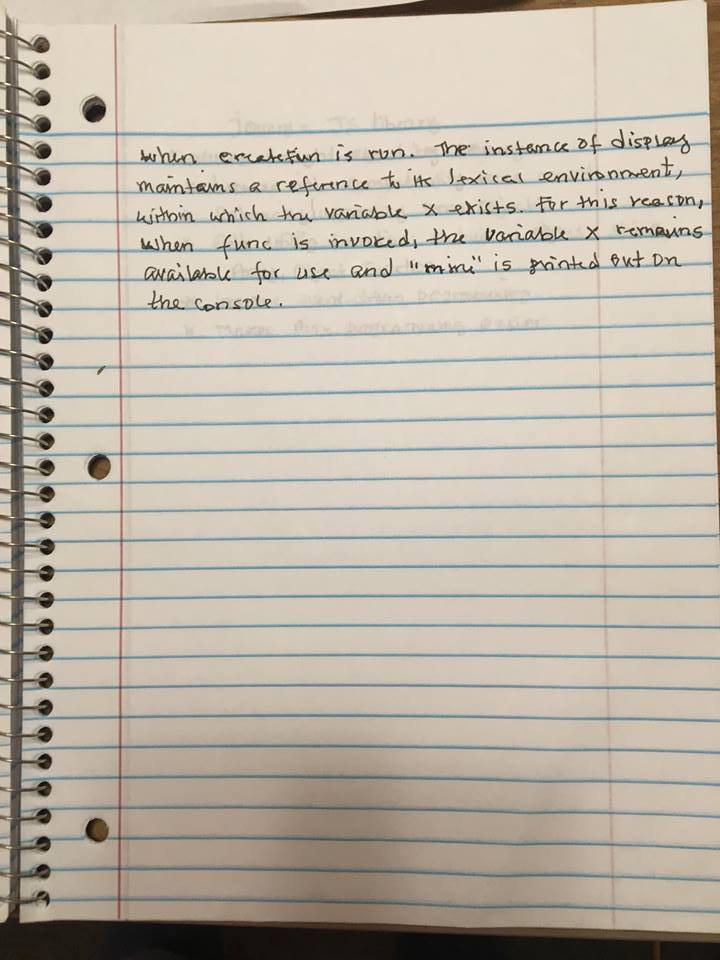 when createFun is run. The instance of display
maintains a reference to its lexical environment,
within which the variable x exists. For this reason,
when func is invoked, the variable x remains
available for use and "mini" is printed out on
the console.